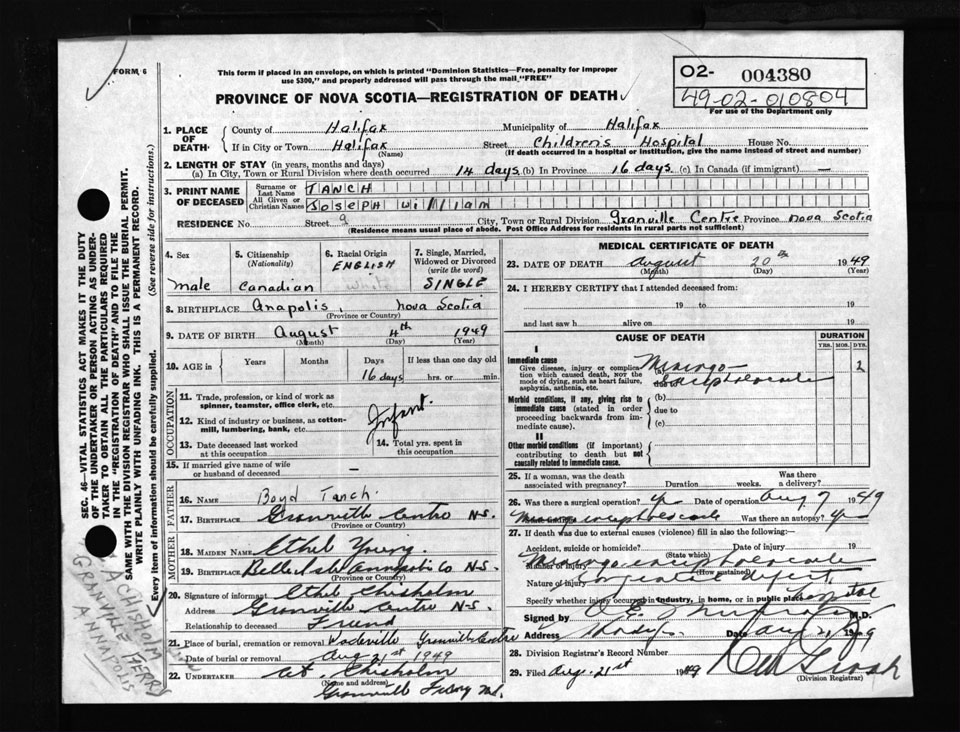 FORM 6
This form if placed in an envelope, on which is printed "Dominion Statistics—Free, penalty for improper
use $300," and property addressed will pass through the mail "FREE"
PROVINCE OF NOVA SCOTIA—REGISTRATION OF DEATH
02- 004380
49-02-010804
For use of the Department only
1. PLACE OF DEATH: County of Halifax Municipality of Halifax
If in City or Town Halifax (Name) Street Children's Hospital House No.
(If death occurred in a hospital or institution, give the name instead of street and number)
2. LENGTH OF STAY (in years, months and days)
(a) In City, Town or Rural Division where death occurred 14 days (b) In Province 16 days (c) In Canada (if immigrant) —
3. PRINT NAME OF DECEASED Surname or Last Name TANCH
All Given or Christian Names JOSEPH William
RESIDENCE No. Street City, Town or Rural Division Granville Centre Province Nova Scotia
(Residence means usual place of abode. Post Office Address for residents in rural parts not sufficient)
4. Sex male
5. Citizenship (Nationality) Canadian
6. Racial Origin ENGLISH white
7. Single, Married, Widowed or Divorced (write the word) SINGLE
8. BIRTHPLACE Anapolis, Nova Scotia
(Province or Country)
9. DATE OF BIRTH August 4th 1949
(Month) (Day) (Year)
10. AGE in Years Months Days 16 days If less than one day old hrs. or min.
OCCUPATION
11. Trade, profession or kind of work as spinner, teamster, office clerk, etc.
12. Kind of industry or business, as cotton-mill, lumbering, bank, etc. Infant.
13. Date deceased last worked at this occupation
14. Total yrs. spent in this occupation
15. If married give name of wife or husband of deceased —
FATHER
16. NAME Boyd Tanch.
17. BIRTHPLACE Granville Centre N-S.
(Province or Country)
MOTHER
18. MAIDEN NAME Ethel Young.
19. BIRTHPLACE Belleisle Annapolis Co N-S.
(Province or Country)
20. Signature of informant Ethel Chisholm
Address Granville Centre N-S.
Relationship to deceased Friend
21. Place of burial, cremation or removal Granville Centre
Date of burial or removal Aug 21st 1949
22. UNDERTAKER Chisholm
(Name and address)
Granville Ferry N.S.
MEDICAL CERTIFICATE OF DEATH
23. DATE OF DEATH August 20th 1949
(Month) (Day) (Year)
24. I HEREBY CERTIFY that I attended deceased from:
19 to 19
and last saw h alive on 19
CAUSE OF DEATH
DURATION
YRS. MOS. DYS.
I
Immediate cause
Give disease, injury or complication which caused death, NOT the mode of dying, such as heart failure, asphyxia, asthenia, etc.
Meningo-
encephalocoele
Morbid conditions, if any, giving rise to immediate cause (stated in order proceeding backwards from immediate cause).
(b)
due to
(c)
II
Other morbid conditions (if important) contributing to death but not causally related to immediate cause.
25. If a woman, was the death associated with pregnancy? Duration weeks. Was there a delivery?
26. Was there a surgical operation? Date of operation Aug 7 1949
encephalocoele Was there an autopsy?
27. If death was due to external causes (violence) fill in also the following:—
Accident, suicide or homicide? Date of injury 19
(State which)
Manner of injury Meningo encephalocoele
(How sustained)
Nature of injury Congenital defect.
Specify whether injury occurred in industry, in home, or in public place
Signed by M.D.
Address Date Aug 21 1949
28. Division Registrar's Record Number
29. Filed Aug. 21st 1949
(Division Registrar)
SEC. 46—VITAL STATISTICS ACT MAKES IT THE DUTY
OF THE UNDERTAKER OR PERSON ACTING AS UNDER-
TAKER TO OBTAIN ALL THE PARTICULARS REQUIRED
IN THE "REGISTRATION OF DEATH" AND TO FILE THE
SAME WITH THE DIVISION REGISTRAR WHO SHALL ISSUE THE BURIAL PERMIT.
WRITE PLAINLY WITH UNFADING INK. THIS IS A PERMANENT RECORD.
Every item of information should be carefully supplied. (See reverse side for instructions.)
A CHISHOLM
GRANVILLE FERRY
ANNAPOLIS